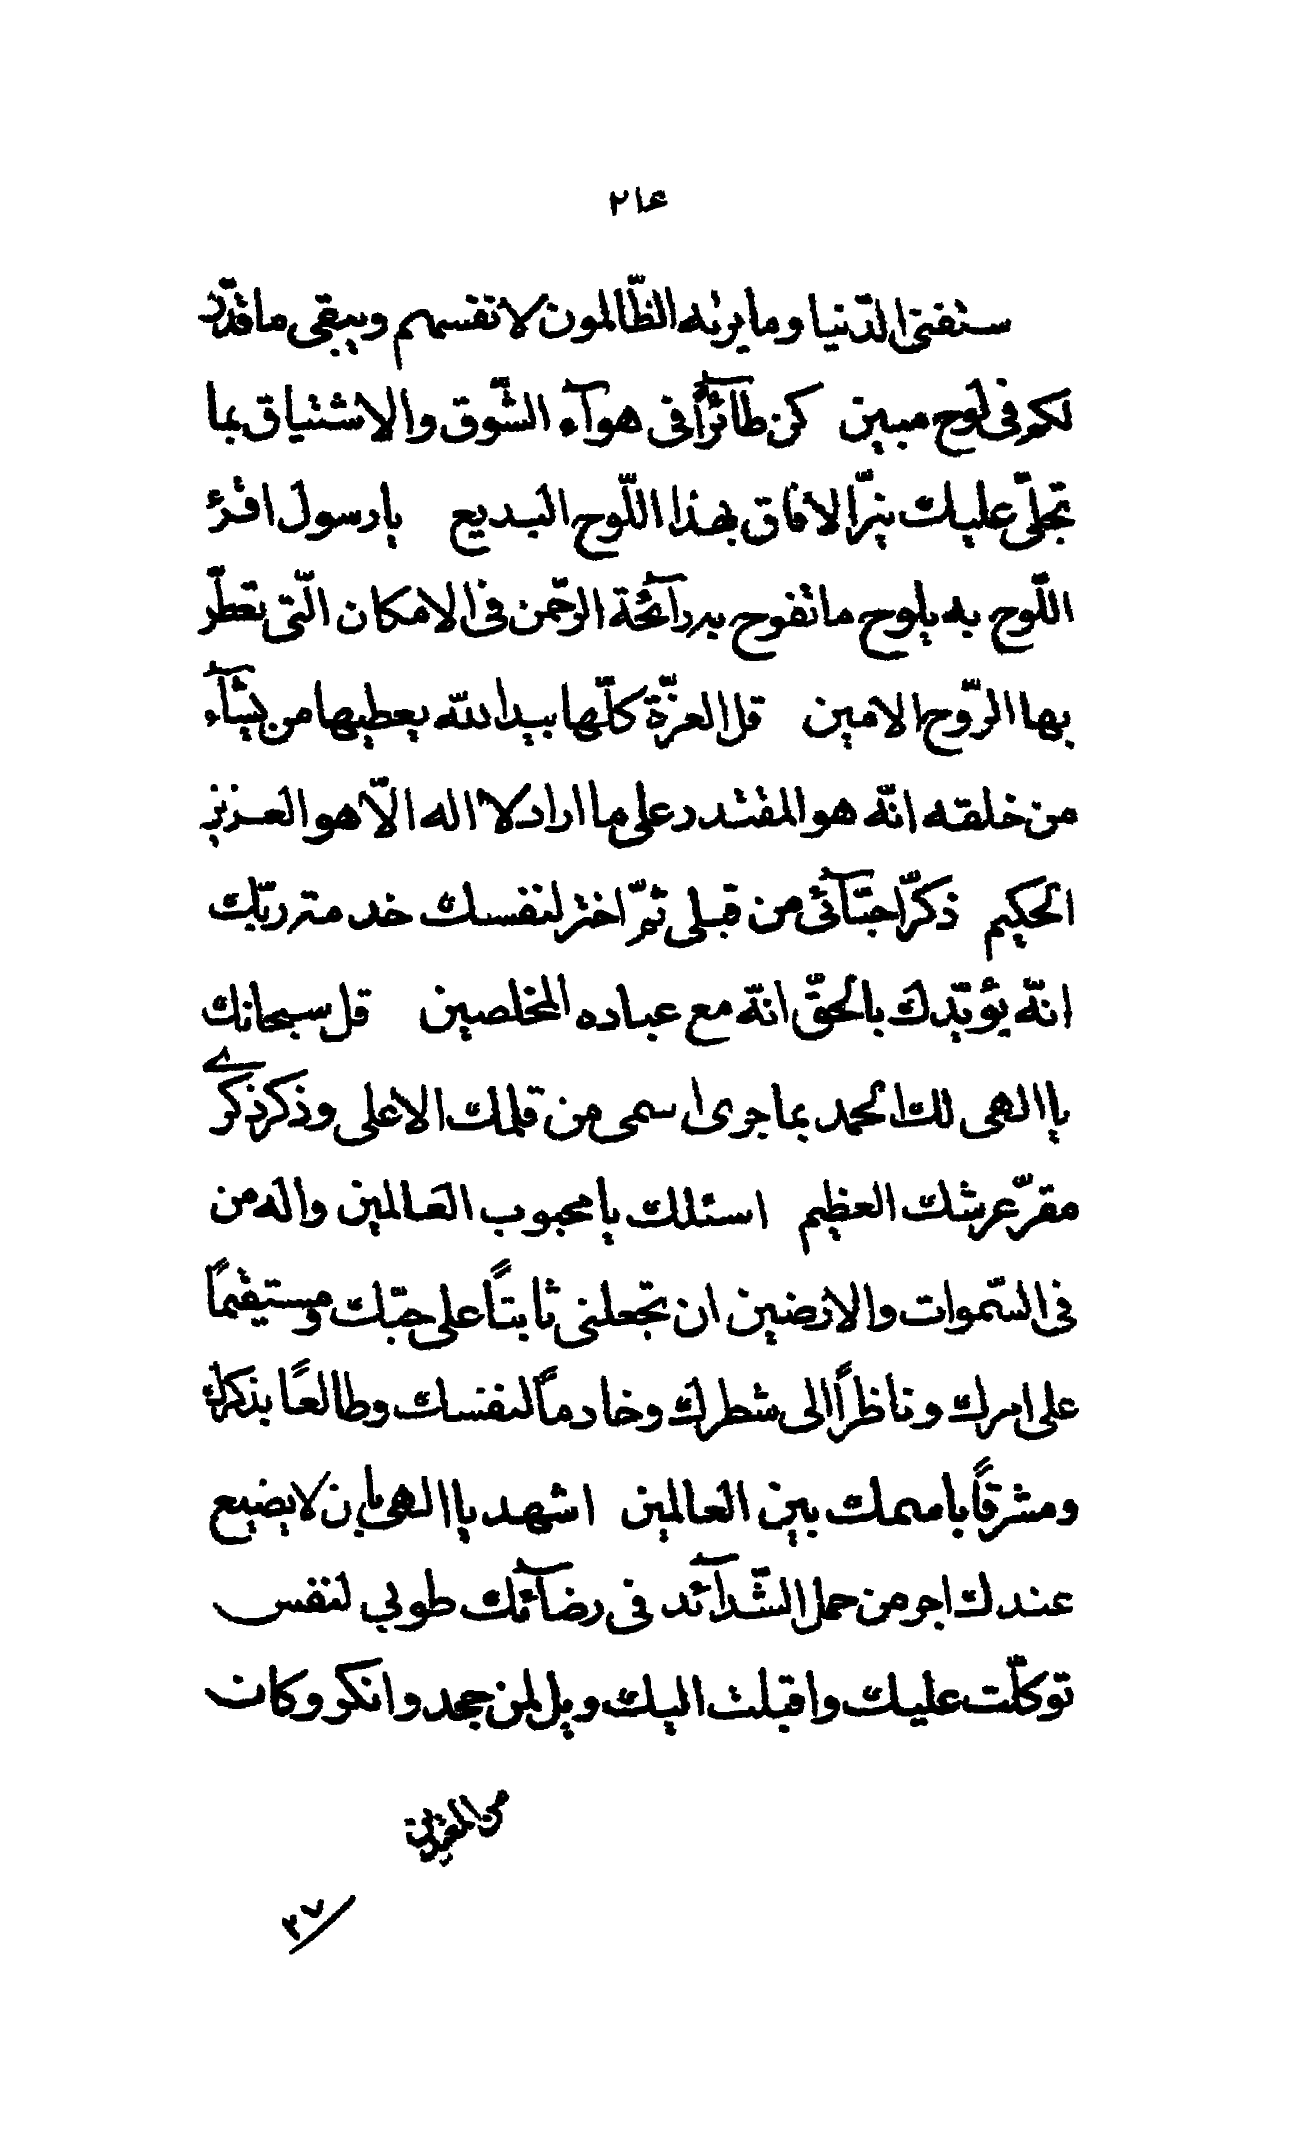 ٢١٤
ستفنى الدّنيا وما يريه الظّالمون لانفسهم ويبقى ما قدّر
لكم فى لوح مبين كن طآئراً فى هوآء الشّوق والاشتياق بما
تجلّى عليك نيّر الافاق بهذا اللّوح البديع يا رسول اقرء
اللّوح به يلوح ما تفوح به رآئحة الرّحمن فى الامكان الّتى تعطّر
بها الرّوح الامين قل العزّة كلّها بيد الله يعطيها من يشآء
من خلقه انّه هو المقتدر على ما اراد لا اله الّا هو العزيز
الحكيم ذكّر احبّآئى من قبلى ثمّ اختر لنفسك خدمة ربّك
انّه يؤيّدك بالحقّ انّه مع عباده المخلصين قل سبحانك
يا الهى لك الحمد بما جرى اسمى من قلمك الاعلى وذكر ذكرى
مقرّ عرشك العظيم اسئلك يا محبوب العالمين واله من
فى السّموات والارضين ان تجعلنى ثابتاً على حبّك ومستقيماً
على امرك وناظراً الى شطرك وخادماً لنفسك وطالعاً بذكرك
ومشرقاً باسمك بين العالمين اشهد يا الهى بان لا يضيع
عندك اجر من حمل الشّدآئد فى رضآئك طوبى لنفس
توكّلت عليك واقبلت اليك ويل لمن جحد وانكر وكان
من المعتدين
٢٧